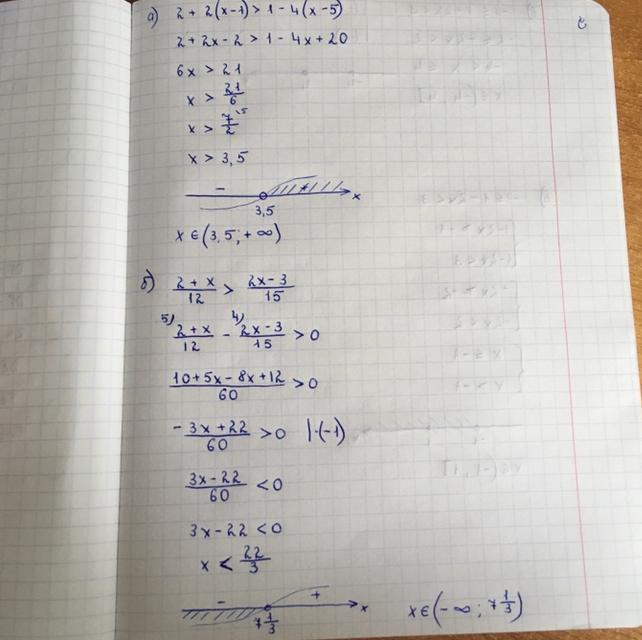 а) 2 + 2(x-1) > 1 - 4(x-5)
2 + 2x - 2 > 1 - 4x + 20
6x > 21
x > 21/6
x > 7/2
x > 3,5
- + x
3,5
x ∈ (3,5; +∞)
б) (2+x)/12 > (2x-3)/15
5) (2+x)/12 - 4) (2x-3)/15 > 0
(10+5x-8x+12)/60 > 0
(-3x+22)/60 > 0 |·(-1)
(3x-22)/60 < 0
3x-22 < 0
x < 22/3
- + x
7 1/3
x ∈ (-∞; 7 1/3)